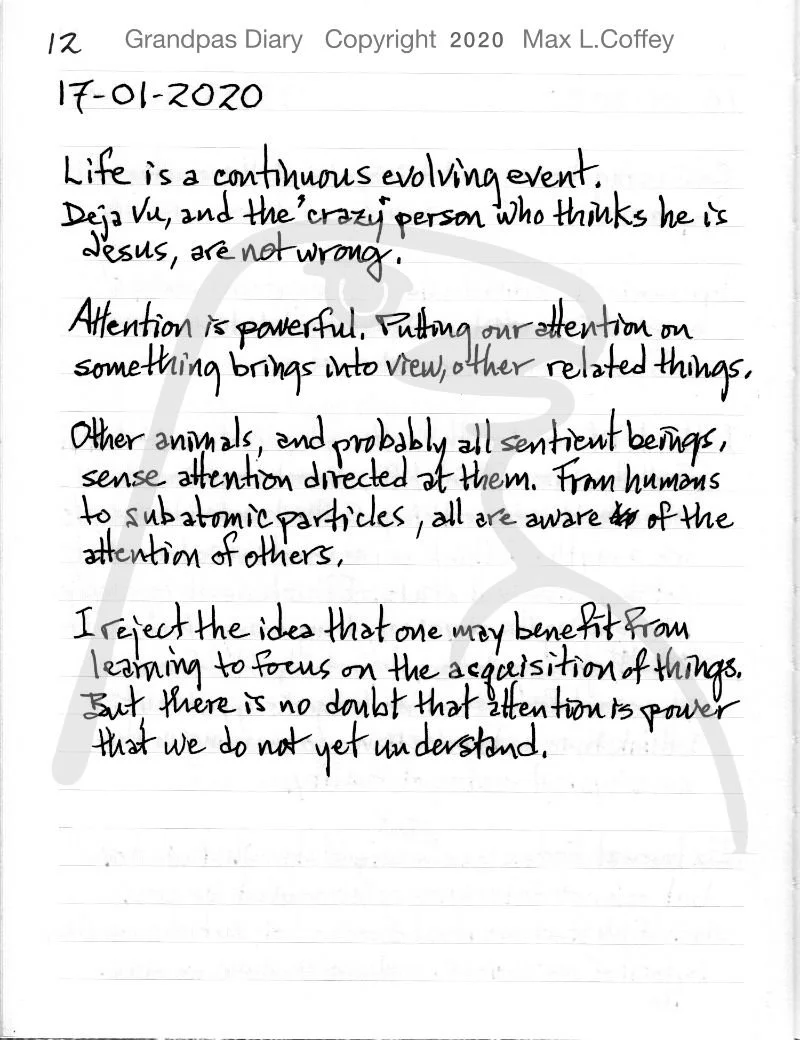 12 Grandpas Diary Copyright 2020 Max L.Coffey
17-01-2020
Life is a continuous evolving event.
Deja Vu, and the "crazy" person who thinks he is
Jesus, are not wrong.
Attention is powerful. Putting our attention on
something brings into view, other related things.
Other animals, and probably all sentient beings,
sense attention directed at them. From humans
to subatomic particles, all are aware of the
attention of others.
I reject the idea that one may benefit from
learning to focus on the acquisition of things.
But, there is no doubt that attention is power
that we do not yet understand.